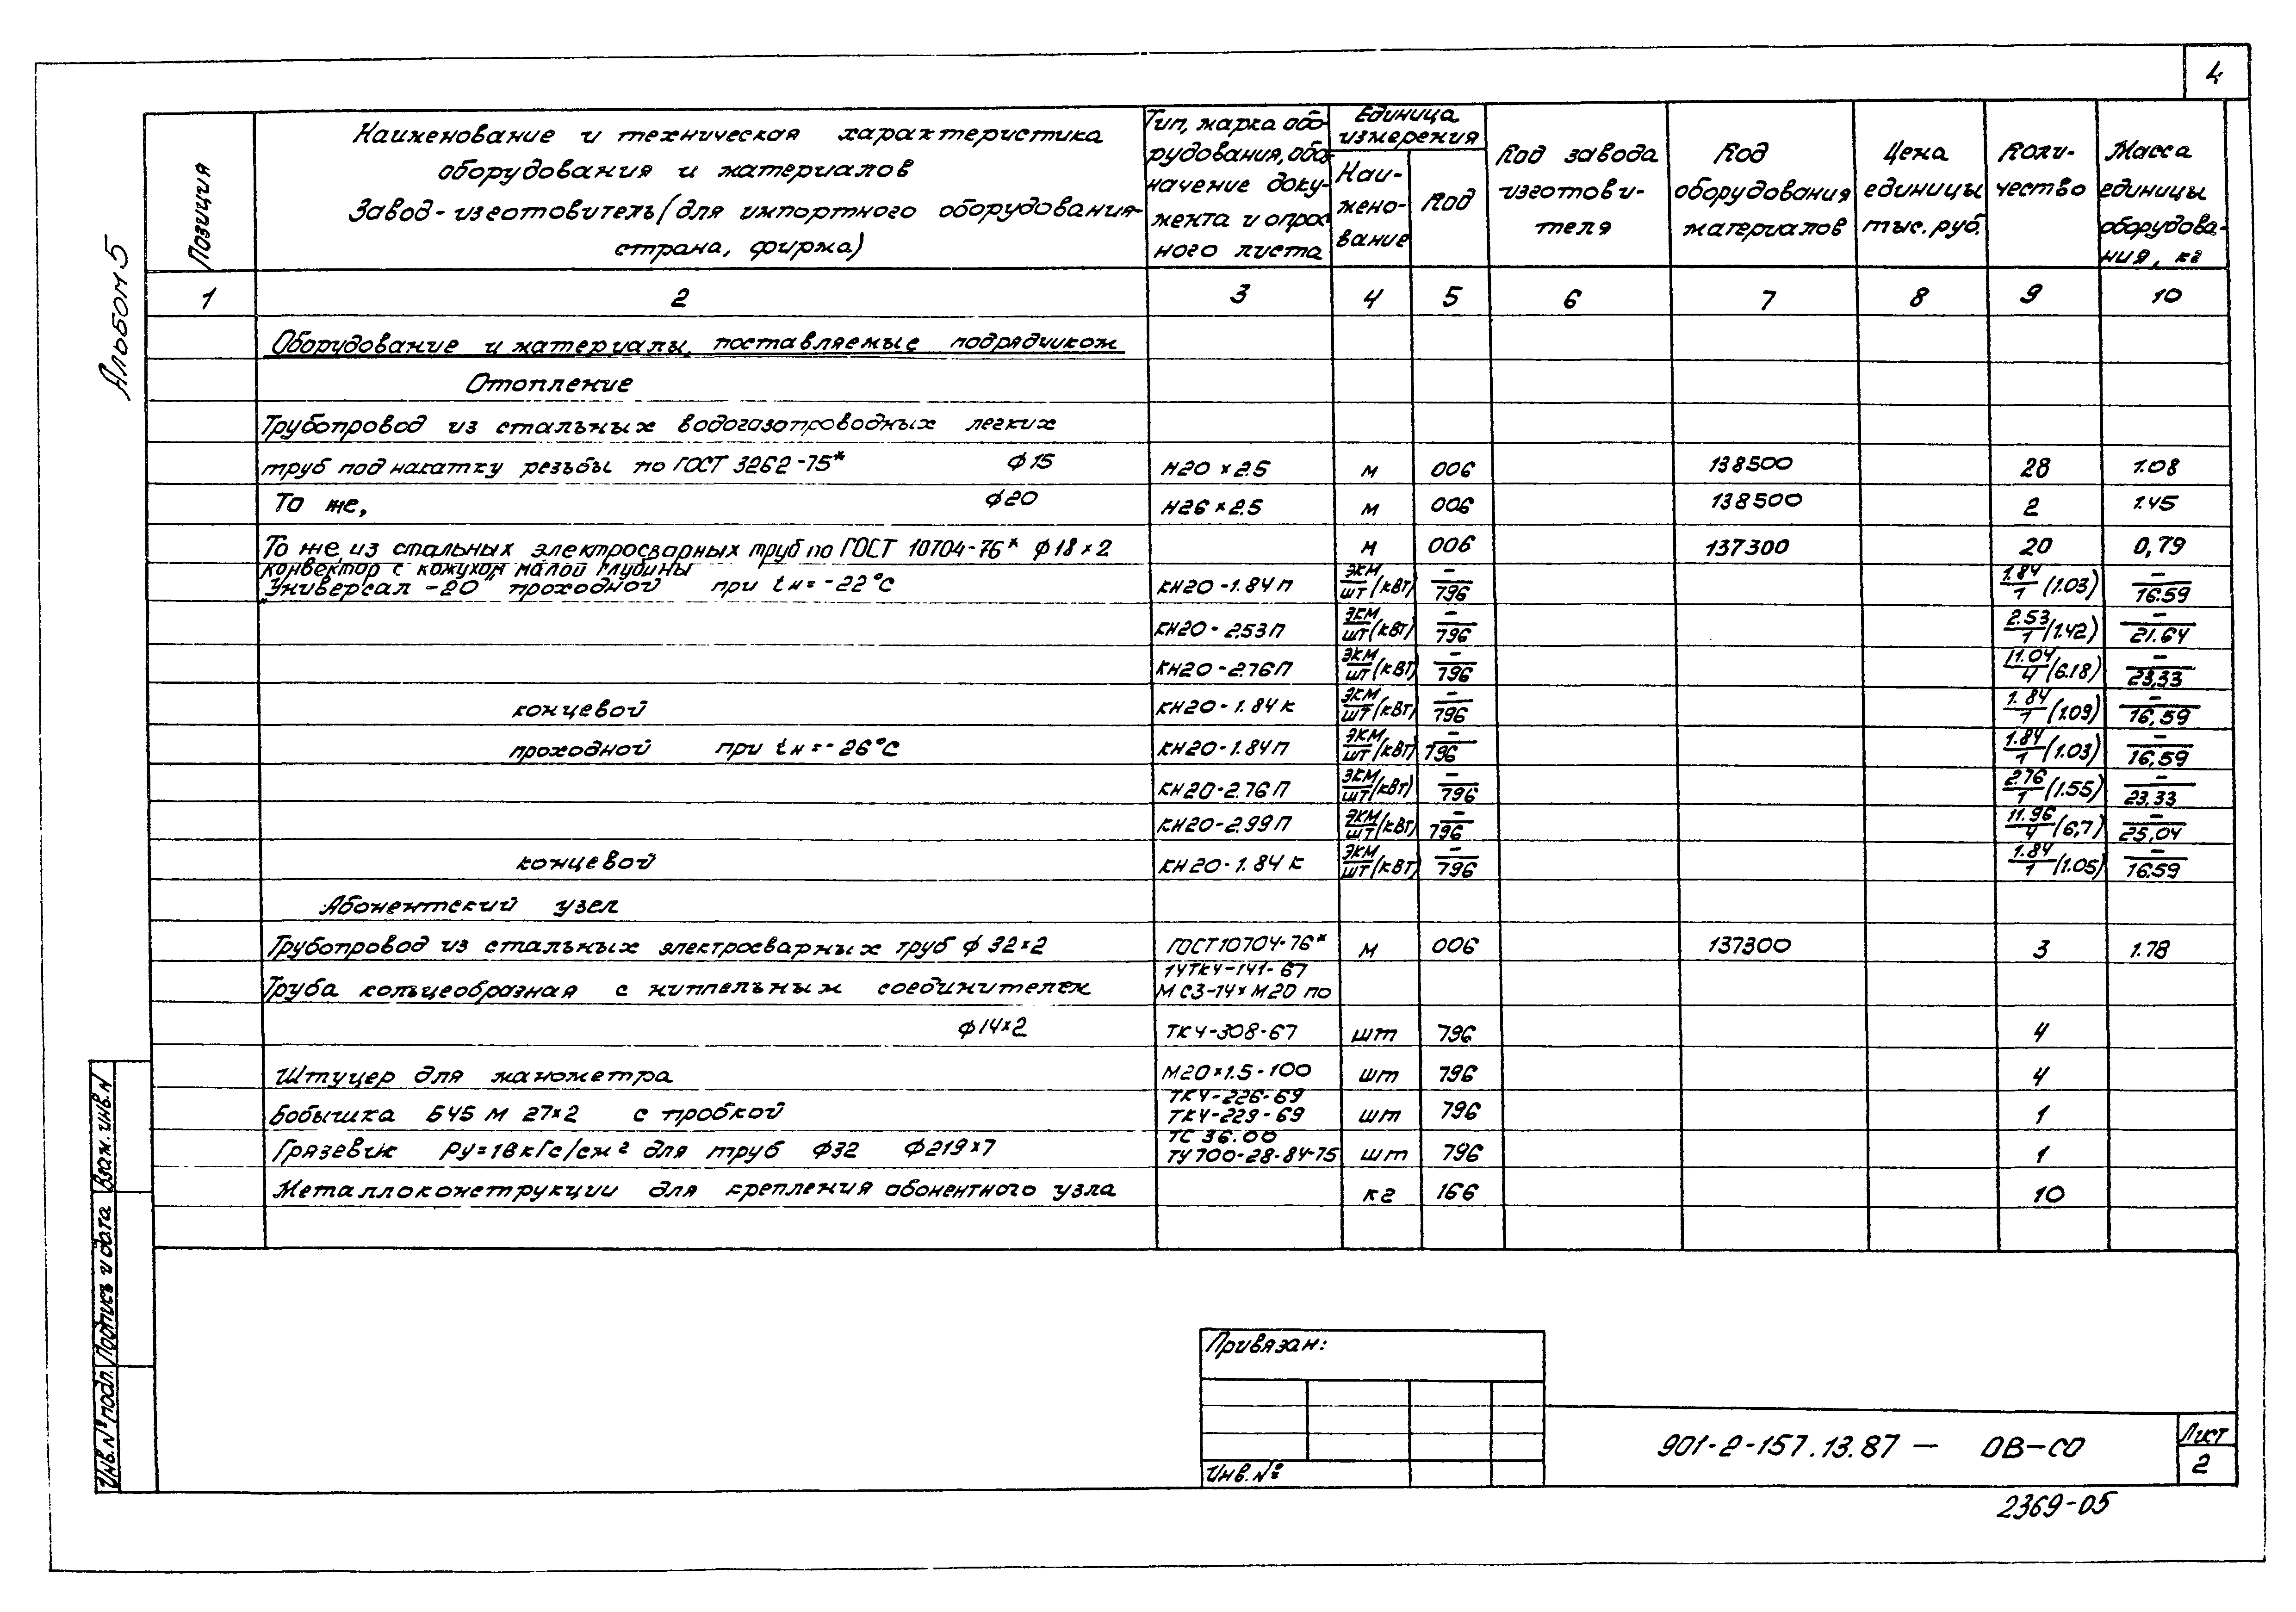 4
Альбом 5
Позиция
Наименование и техническая характеристика
оборудования и материалов
Завод-изготовитель (для импортного оборудования-
страна, фирма)
Тип, марка обо-
рудования, обоз-
начение доку-
мента и опрос-
ного листа
Единица
измерения
Наи-
мено-
вание
Код
Код завода
изготови-
теля
Код
оборудования
материалов
Цена
единицы
тыс. руб.
Коли-
чество
Масса
единицы
оборудова-
ния, кг
1 2 3 4 5 6 7 8 9 10
Оборудование и материалы, поставляемые подрядчиком
Отопление
Трубопровод из стальных водогазопроводных легких
труб под накатку резьбы по ГОСТ 3262-75* ф15 Н20 × 2.5 м 006 138500 28 1.08
То же, ф20 Н26 × 2.5 м 006 138500 2 1.45
То же из стальных электросварных труб по ГОСТ 10704-76* ф18×2 м 006 137300 20 0,79
конвектор с кожухом малой глубины
"Универсал -20" проходной при tн=-22°С КН20-1.84П ЭКМ/шт (кВт) -/796 1.84/1 (1.03) -/16.59
КН20-2.53П ЭКМ/шт (кВт) -/796 2.53/1 (1.42) -/21.64
КН20-2.76П ЭКМ/шт (кВт) -/796 11.04/4 (6.18) -/23,33
концевой КН20-1.84К ЭКМ/шт (кВт) -/796 1.84/1 (1.09) -/16,59
проходной при tн=-26°С КН20-1.84П ЭКМ/шт (кВт) -/796 1.84/1 (1.03) -/16,59
КН20-2.76П ЭКМ/шт (кВт) -/796 2.76/1 (1.55) -/23.33
КН20-2.99П ЭКМ/шт (кВт) -/796 11.96/4 (6,7) -/25,04
концевой КН20-1.84К ЭКМ/шт (кВт) -/796 1.84/1 (1.05) -/16.59
Абонентский узел
Трубопровод из стальных электросварных труб ф 32×2 ГОСТ10704-76* м 006 137300 3 1.78
14ТК4-141-67
Труба кольцеобразная с ниппельным соединителем МС3-14×М20 по
ф14×2 ТК4-308-67 шт 796 4
Штуцер для манометра М20×1.5-100 шт 796 4
ТК4-226-69
Бобышка Б45 М 27×2 с пробкой ТК4-229-69 шт 796 1
ТС 36.00
Грязевик Ру=16кГс/см² для труб Ф32 Ф219×7 ТУ700-28-84-75 шт 796 1
Металлоконструкции для крепления абонентного узла кг 166 10
Взам. инв. N
Подпись и дата
Инв. N° подл.
Привязан:
Инв. №
901-2-157.13.87 - ОВ-СО
Лист
2
2369-05